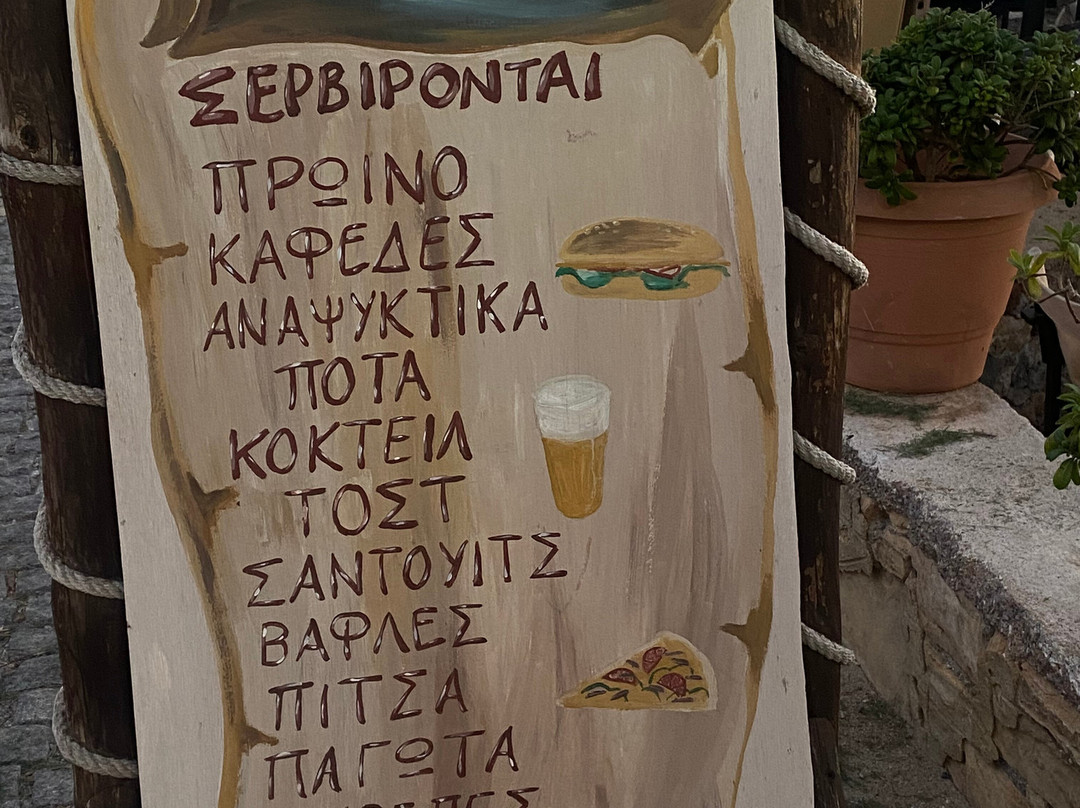 ΣΕΡΒΙΡΟΝΤΑΙ
ΠΡΩΙΝΟ
ΚΑΦΕΔΕΣ
ΑΝΑΨΥΚΤΙΚΑ
ΠΟΤΑ
ΚΟΚΤΕΙΛ
ΤΟΣΤ
ΣΑΝΤΟΥΙΤΣ
ΒΑΦΛΕΣ
ΠΙΤΣΑ
ΠΑΓΩΤΑ